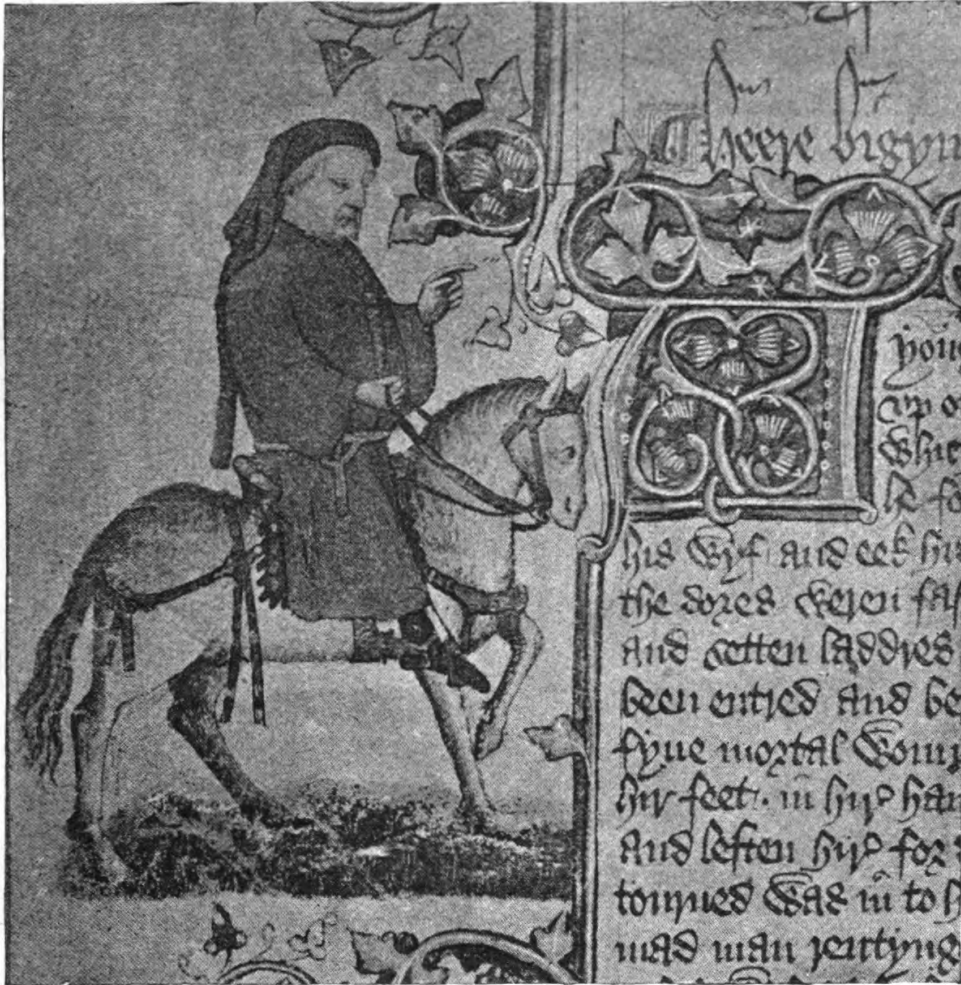 Heere bigyn
youg
up o
Whic
hise fo
his wyf and eek hir
the dores weren fas
and setten laddres
been entred and be
fyue mortal woun
hir feet · in hir han
and leften hir for
tourned was in to h
mad man rentyng